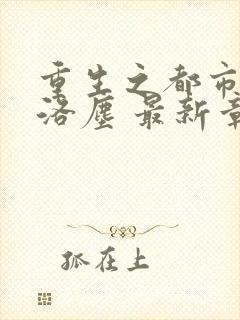 重生之都市
洛尘 最新章
孤在上